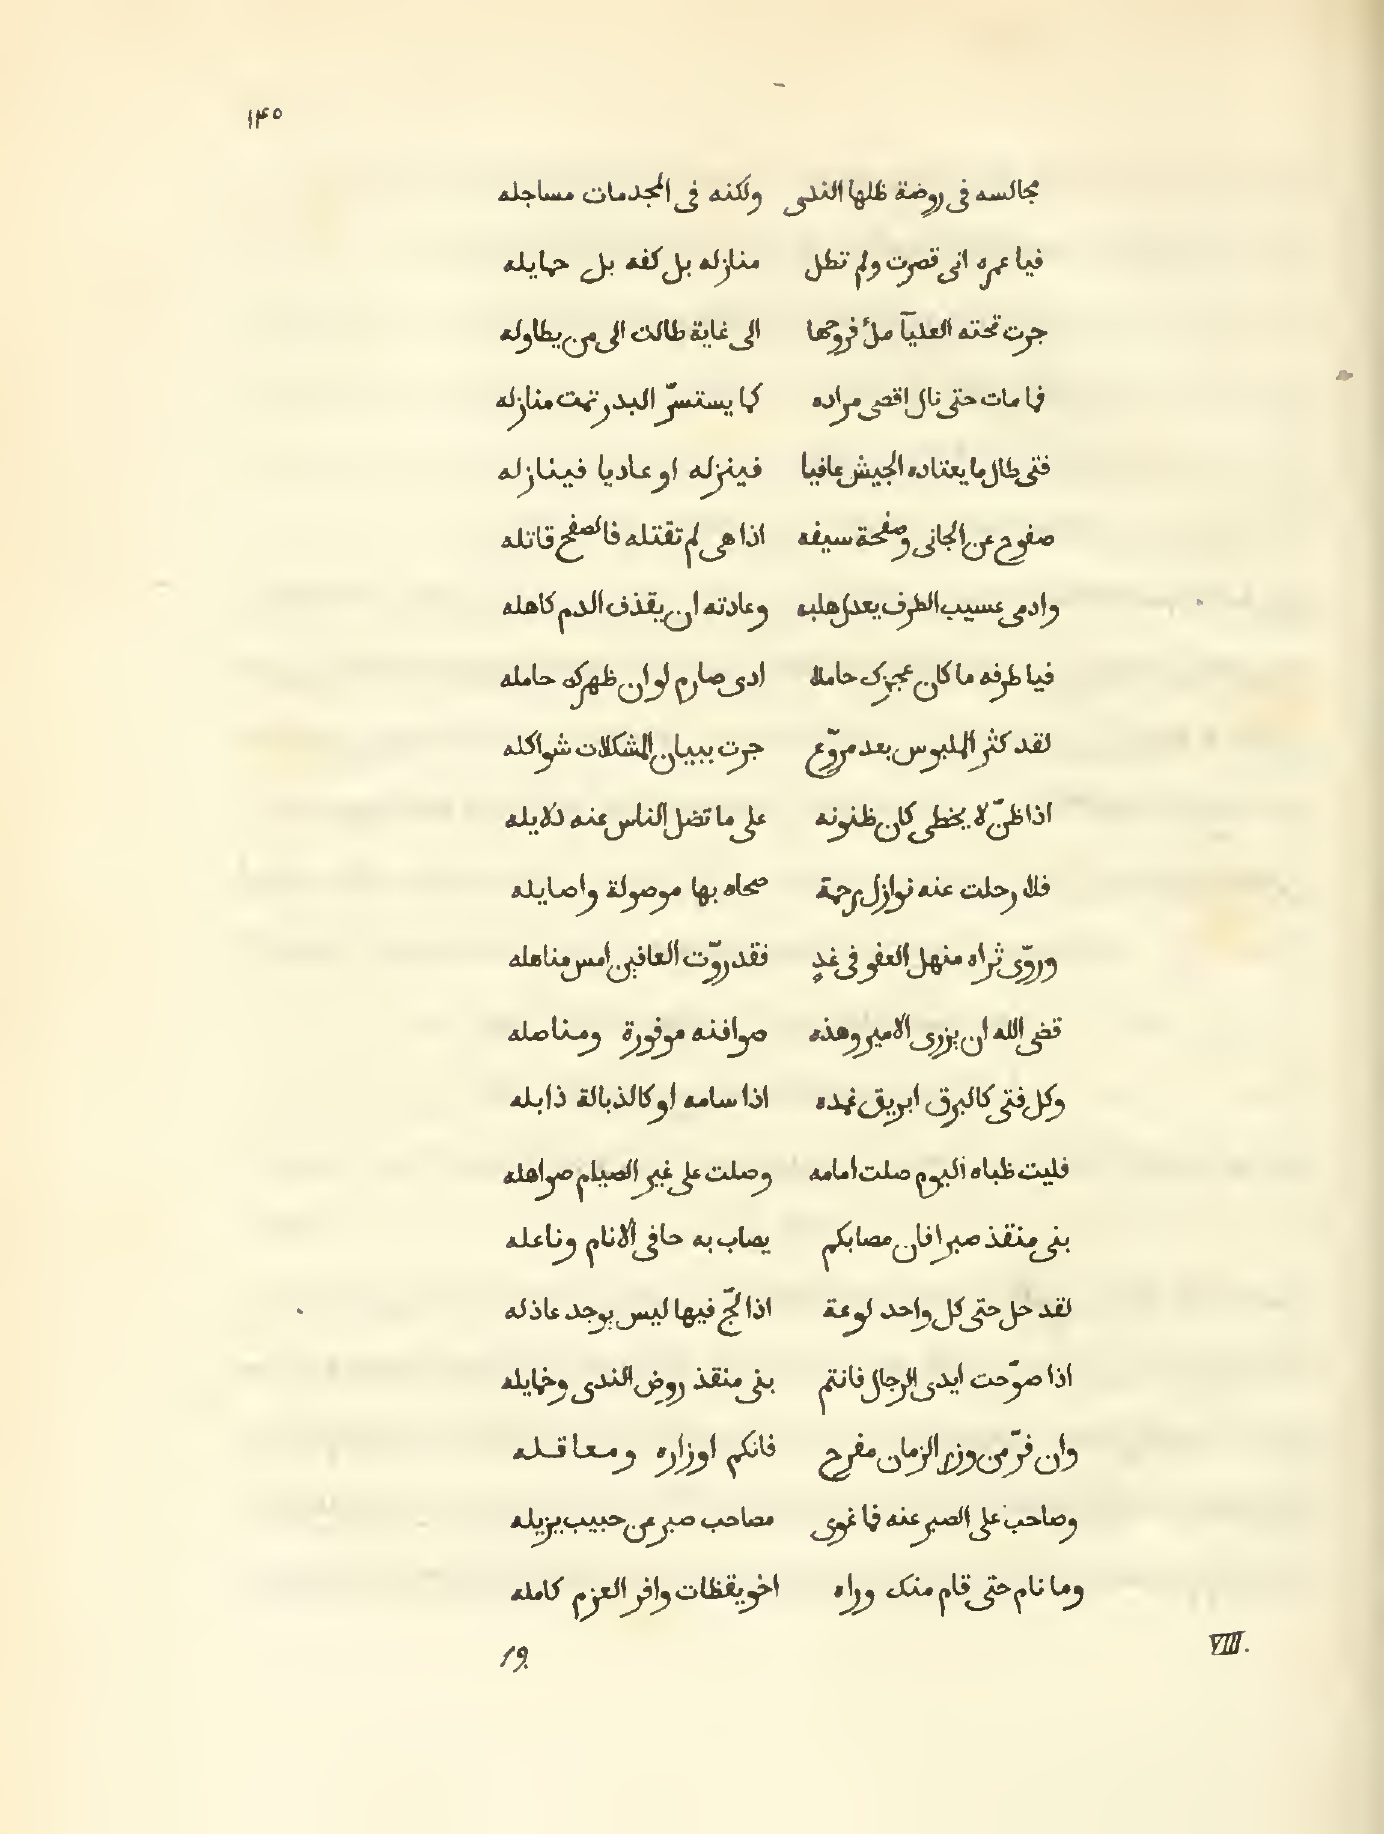 ١٤٥
مجالسه فى روضة ظلها الندى ولكنه فى المجدمات مساجله
فيا عمره انى قصرت ولم تطل منازله بل كفه بل حمايله
جرت تحته العليآ ملأ فروجها الى غاية طالت الى من يطاوله
فما مات حتى نال اقصى مراده كما يستسرّ البدر تمت منازله
فتى طال ما يعتاده الجيش عافيا فينزله او عاديا فينازله
صفوح عن الجانى وصفحة سيفه اذا هى لم تقتله فالصفح قاتله
وادمى عسيب الطرف يعدل هلبه وعادته ان يقذف الدم كاهله
فيا طرفه ما كان عجزك حاملا ادى صارم لو ان ظهرك حامله
لقد كثر الملبوس بعد مروّع جرت ببيان المشكلات شواكله
اذا ظنّ لا يخطى كان ظنونه على ما تضل الناس عنه دلايله
فلا رحلت عنه نوازل رحمة ضحاه بها موصولة واصايله
وروّى ثراه منهل العفو فى غدٍ فقد روّت العافين امس مناهله
قضى الله ان يزرى الامير وهذه صوافنه موفورة ومناصله
وكل فتى كالبرق ابريق غمده اذا سامه او كالذبالة ذابله
فليت ظباه اليوم صلت امامه وصلت على غير الصيام صواهله
بنى منقذ صبرا فان مصابكم يصاب به حافى الانام وناعله
لقد حل حتى كل واحد لوعة اذا لجّ فيها ليس يوجد عاذله
اذا صوّحت ايدى الرجال فانتم بنى منقذ روض الندى وخمايله
وان فرّ من وزر الزمان مفرح فانكم اوزاره ومعاقله
وصاحب على الصبر عنه فما غوى مصاحب صبر عن حبيب يزيله
وما نام حتى قام منك وراه اخو يقظات وافر العزم كامله
19. VIII.